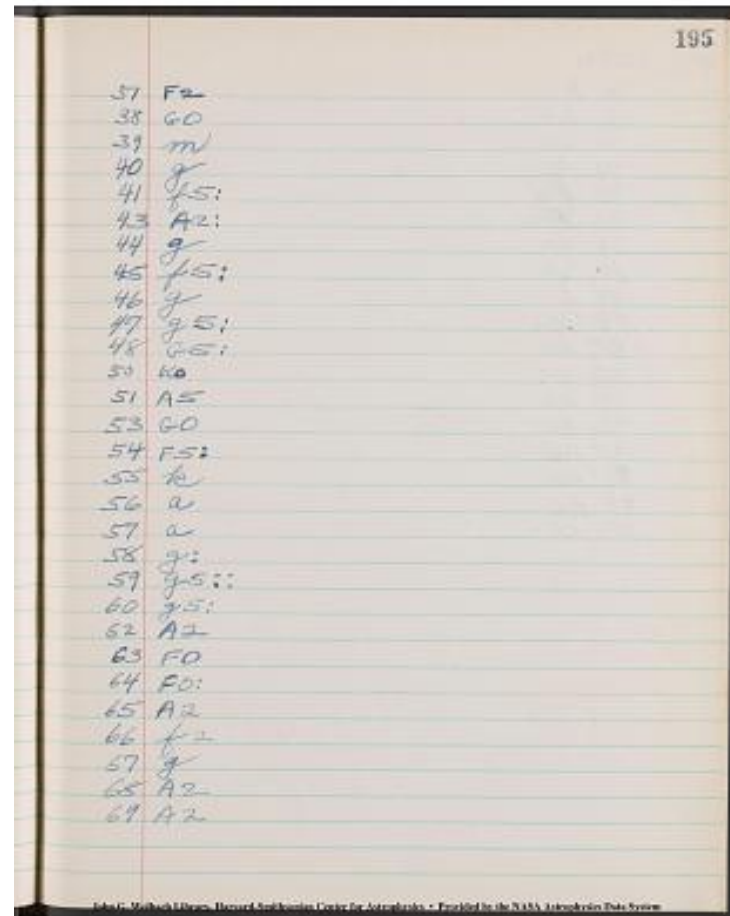 195
37 F2
38 G0
39 m
40 g
41 f5:
43 A2:
44 g
45 f5:
46 g
47 g5:
48 G5:
50 K0
51 A5
53 G0
54 F5:
55 k
56 a
57 a
58 g:
59 g5::
60 g5:
62 A2
63 F0
64 F0:
65 A2
66 f2
67 g
68 A2
69 A2
John G. Wolbach Library, Harvard-Smithsonian Center for Astrophysics • Provided by the NASA Astrophysics Data System